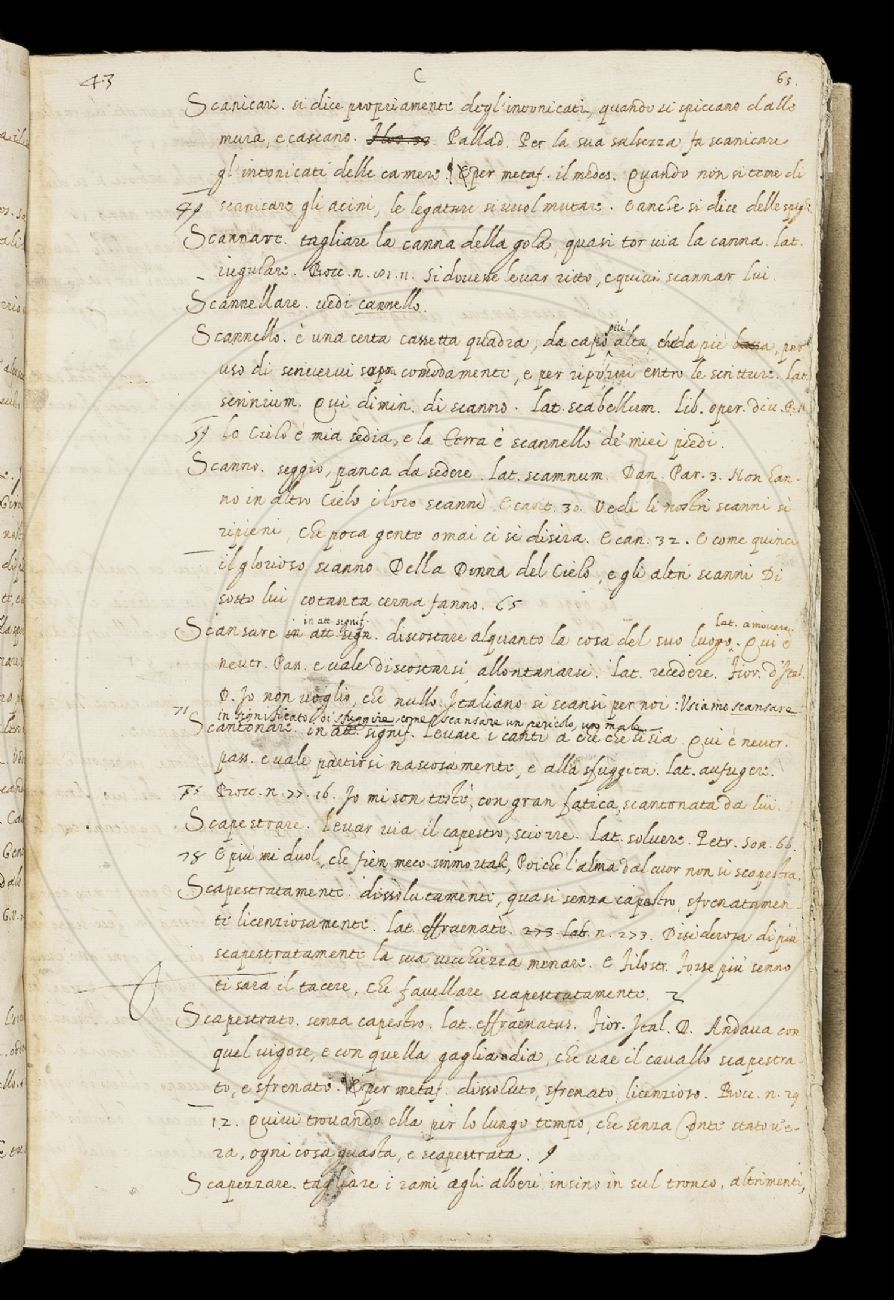 43 C 65.
Scanicare. si dice propriamente degl'intonicati, quando si spiccano dalle
mura, e cascano. Pallad. Per la sua salsezza fa scanicare
gl'intonicati delle camere. E per metaf. il medes. Quando non si teme di
scanicare gli acini, le legature si vuol mutare. E anche si dice delle spighe
Scannare. tagliare la canna della gola, quasi tor via la canna. lat.
iugulare. Bocc. n. 81. 11. Si dovesse levar ritto, e quivi scannar lui.
Scannellare. vedi cannello.
Scannello. è una certa cassetta quadra, da capo più alta, che da piè bassa, per
uso di scrivervi sopra comodamente, e per riporvi entro le scritture. lat.
scrinium. Qui dimin. di scanno. lat. scabellum. lib. oper. div.
59 lo Cielo è mia sedia, e la terra è scannello de' miei piedi.
Scanno. seggio, panca da sedere. lat. scamnum. Dan. Par. 3. Non han-
no in altro Cielo i loro scanni. E cant. 30. Vedi li nostri scanni sì
ripieni, che poca gente omai ci si disira. E can. 32. E come quinci
il glorioso scanno Della Donna del Cielo, e gli altri scanni Di
sotto lui cotanta cerna fanno. 65
in att. signif. lat. amovere.
Scansare in att. sign. discostare alquanto la cosa del suo luogo. Qui è
neutr. Pass. e vale Discostarsi, allontanarsi. lat. recedere. Fior. d'Ital.
D. Io non voglio, che nullo Italiano si scansi per noi. Usiamo scansare
in significato di sfuggire come scansare un pericolo, un male
71 Scantonare. in att. signif. levare i canti a che che si sia. Qui è neutr.
pass. e vale partirsi nascosamente, e alla sfuggita. lat. aufugere.
75 Bocc. n. 77. 16. Io mi son testè, con gran fatica, scantonata da lui.
Scapestrare. levar via il capestro, sciorre. lat. solvere. Petr. Son. 66.
78 E più mi duol, che fien meco immortali, Poichè l'alma dal cuor non si scapestra.
Scapestratamente. dissolutamente, quasi senza capestro, sfrenatamen-
te licenziosamente. lat. effraenatè. 273. lab. n. 273. Disiderosa di più
scapestratamente la sua vecchiezza menare. E Filostr. Forse più senno
ti sarà il tacere, che favellare scapestratamente. 2
Scapestrato. senza capestro. lat. effraenatus. Fior. Ital. D. Andava con
quel vigore, e con quella gagliardia, che vae il cavallo scapestra-
to, e sfrenato. E per metaf. dissoluto, sfrenato, licenzioso. Bocc. n. 29
12. Quivi trovando ella per lo lungo tempo, che senza Conte stato v'e-
ra, ogni cosa guasta, e scapestrata. 9
Scapezzare. tagliare i rami agli alberi insino in sul tronco, altrimenti,